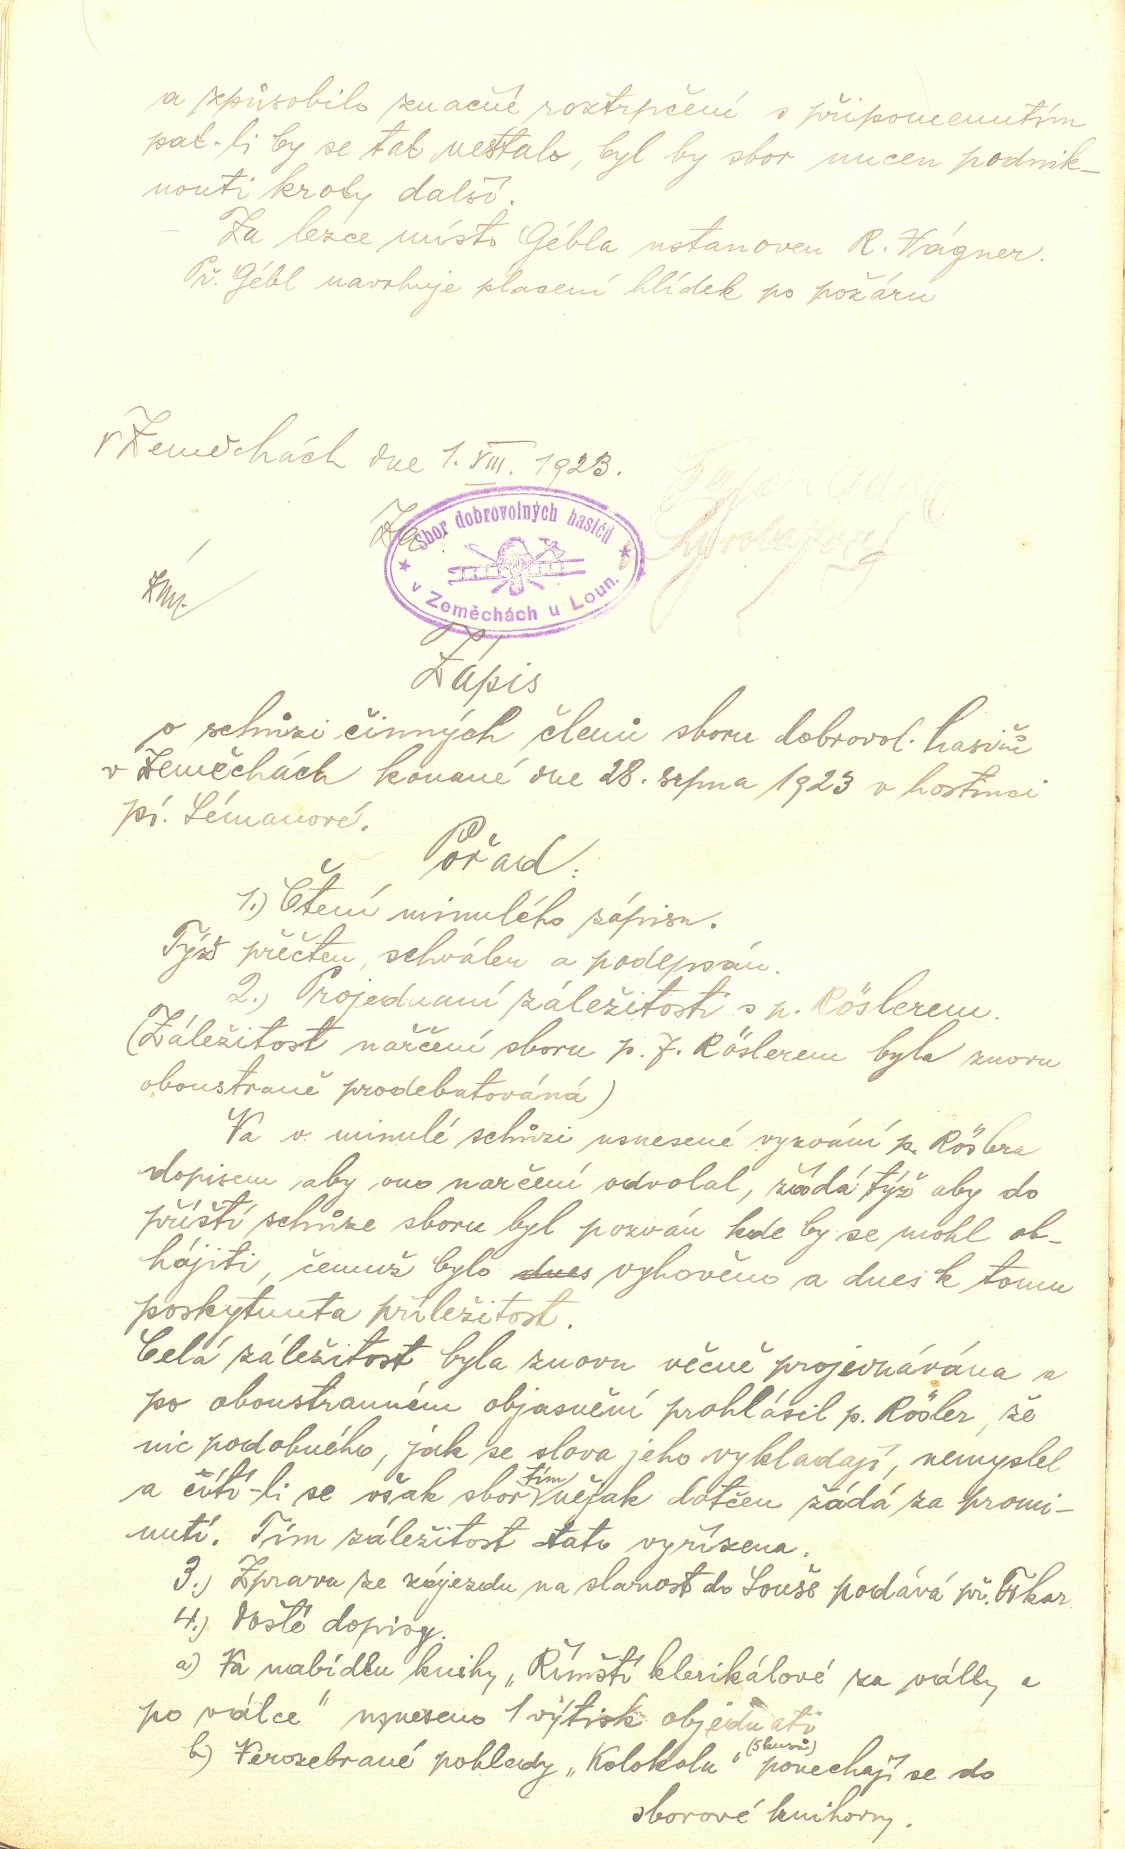 a způsobilo značné roztrpčení s připomenutím
pak-li by se tak nestalo, byl by sbor nucen podnik-
nouti kroky další.
— Za lezce místo Gébla ustanoven R. Vágner.
Př. Gébl navrhuje placení hlídek po požáru
V Zeměchách dne 1. VIII. 1923.
Sbor dobrovolných hasičů
v Zeměchách u Loun.
Zápis
o schůzi činných členů sboru dobrovol. hasičů
v Zeměchách konané dne 28. srpna 1923 v hostinci
pí. Lémanové.
Pořad:
1.) Čtení minulého zápisu.
Týž přečten, schválen a podepsán.
2.) Projednaní záležitosti s p. Röslerem.
(Záležitost nařčení sboru p. J. Röslerem byla znovu
oboustraně prodebatováná)
Na v minulé schůzi usnesené vyzvání p. Röslra
dopisem aby ono narčení odvolal, žádá týž aby do
příští schůze sboru byl pozván kde by se mohl ob-
hájiti, čemuž bylo dnes vyhověno a dnes k tomu
poskytnuta příležitost.
Celá záležitost byla znovu věcně projednávána a
po oboustranném objasnění prohlásil p. Rösler, že
nic podobného, jak se slova jeho vykladají, nemyslel
a cítí-li se však sbor tím nějak dotčen žádá za promi-
nutí. Tím záležitost tato vyřízena.
3.) Zprava ze zájezdu na slavnost do Louše podává př.
4.) Došlé dopisy.
a) Na nabídku knihy „Římští klerikálové za války a
po válce" usneseno 1 výtisk objednati
b) Nerozebrané pohledy „Kolokolu" (5 kusů) ponechají se do
sborové knihovny.